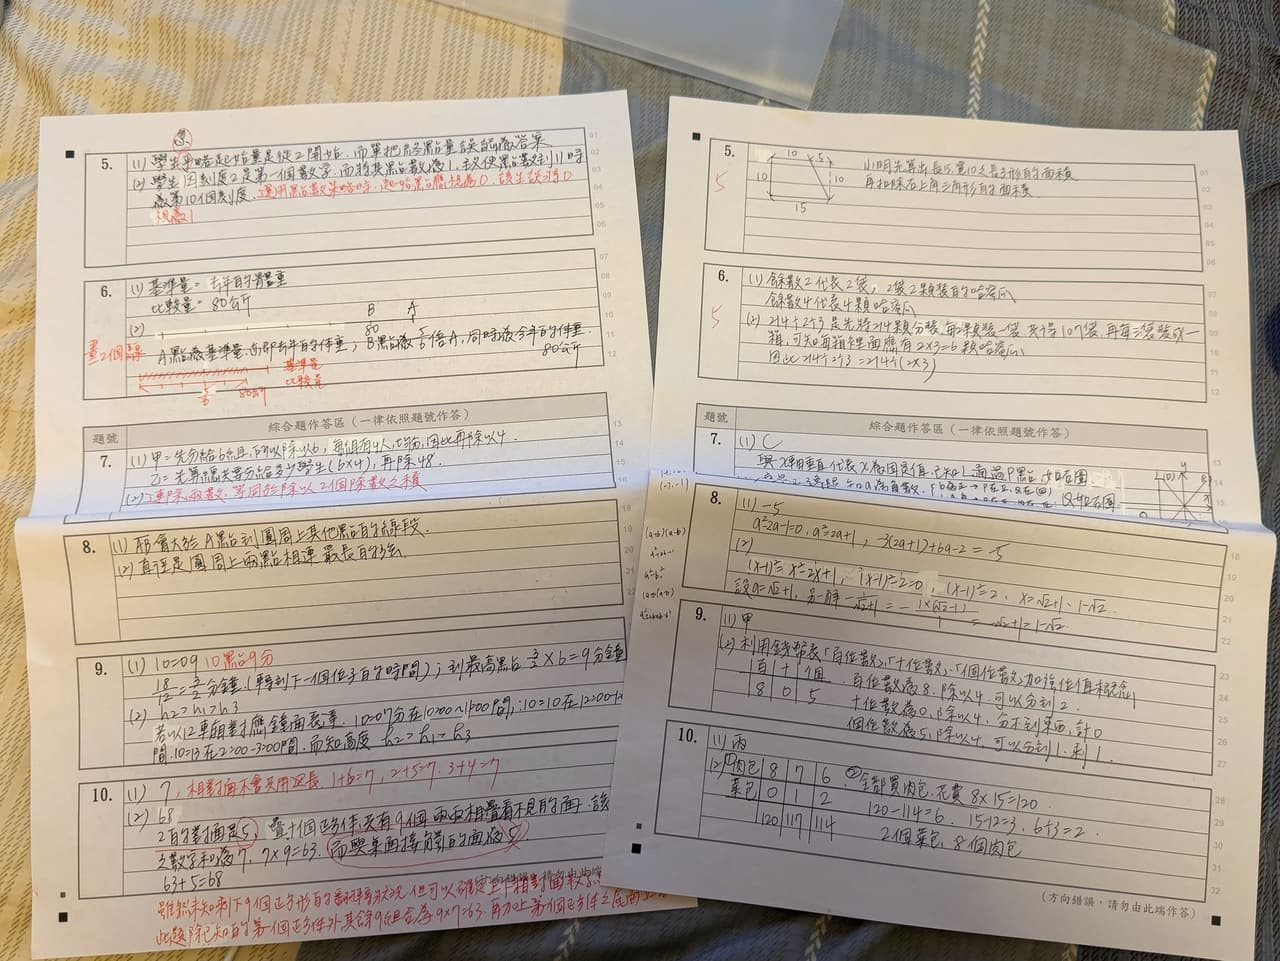 5.
(1) 學生忽略起始量是從2開始,而單把終點量誤認為答案
(2) 學生因刻度2是第一個數字,而將其點數為1,致使點數到11時
為第10個刻度.運用點數策略時,起始點應視為0,該生誤將0
視為1
6.
(1) 基準量=去年的體重
比較量=80公斤
(2)
B A
80
畫2個線
A點為基準量,亦即去年的體重;B點為倍A,同時為今年的體重.
80公斤
基準量
80公斤 比較量
題號 綜合題作答區(一律依照題號作答)
7.
(1) 甲=先分給6組,所以除以6,每組有4人,均分,因此再除以4.
乙=先算總共要分給多少學生(6×4),再除48.
(2) 連除兩數,等同於除以2個除數之積
8.
(1) 都會大於A點到圓周上其他點的線段.
(2) 直徑是圓周上兩點相連最長的弦
9.
(1) 10=09 10點9分
18/12=3/2分鐘(轉到下一個位子的時間);到最高點3/2×6=9分鐘
(2) h2>h1>h3
若以12車廂對應鐘面表示.10=07分在10:00~11:00間,;10=10在12:00
間.10=13在2:00~3:00間.而知高度h2>h1>h3
10.
(1) 7,相對面不會共用邊長.1+6=7,2+5=7.3+4=7
(2) 68
2的對面是5,疊十個正方體,共有9個兩兩相疊看不見的面.該
之數字和為7,7×9=63.而與桌面接觸的面為5
63+5=68
雖然未知剩下9個正方形的翻轉狀況,但可以確定上下相對面數字
此題除已知的第一個正方體外其餘9組合為9×7=63.再加上第一個正方體之底面
01
02
03
04
05
06
07
08
09
10
11
12
13
14
15
16
18
19
20
21
22
5.
5
10 5
10 10
15
小明先算出長15,寬10之長方形的面積
再扣除右上角三角形的面積
6.
5
(1) 餘數2代表2袋,2袋2顆裝的哈密瓜
餘數4代表4顆哈密瓜
(2) 214÷2÷3是先將214顆分裝,每2顆裝一袋,共得107袋,再每三袋裝成一
箱,可知每箱裡面應有2×3=6顆哈密瓜
因此214÷2÷3=214÷(2×3)
題號 綜合題作答區(一律依照題號作答)
7.
(1) C
與X軸垂直代表X為固定值,已知L通過P點,如右圖
8.
(1) -5
a²-2a-1=0,a²=2a+1,-3(2a+1)+6a-2=-5
(2)
(x-1)²=x²-2x+1,(x-1)²-2=0,(x-1)²=2,x=√2+1、1-√2
設a=√2+1,另一解-1/(√2+1)=-1×(√2-1)/1=-√2+1=1-√2
(a-b)(a-b)
a²-b²
9.
(1) 甲
(2) 利用錢幣表「百位數」、「十位數」、「個位數」加強位值概念
百 十 個
8 0 5
百位數為8,除以4可以分到2.
十位數為0,除以4,分不到東西,計0
個位數為5,除以4,可以分到1,剩1.
10.
(1) 丙
(2) ①
肉包 8 7 6
菜包 0 1 2
120 117 114
②全部買肉包.花費8×15=120.
120-114=6. 15-12=3,6÷3=2.
2個菜包、8個肉包
(方向錯誤,請勿由此端作答)
01
02
03
04
05
06
07
08
09
10
11
12
13
14
15
16
18
19
20
21
22
23
24
25
26
27
28
29
30
31
32